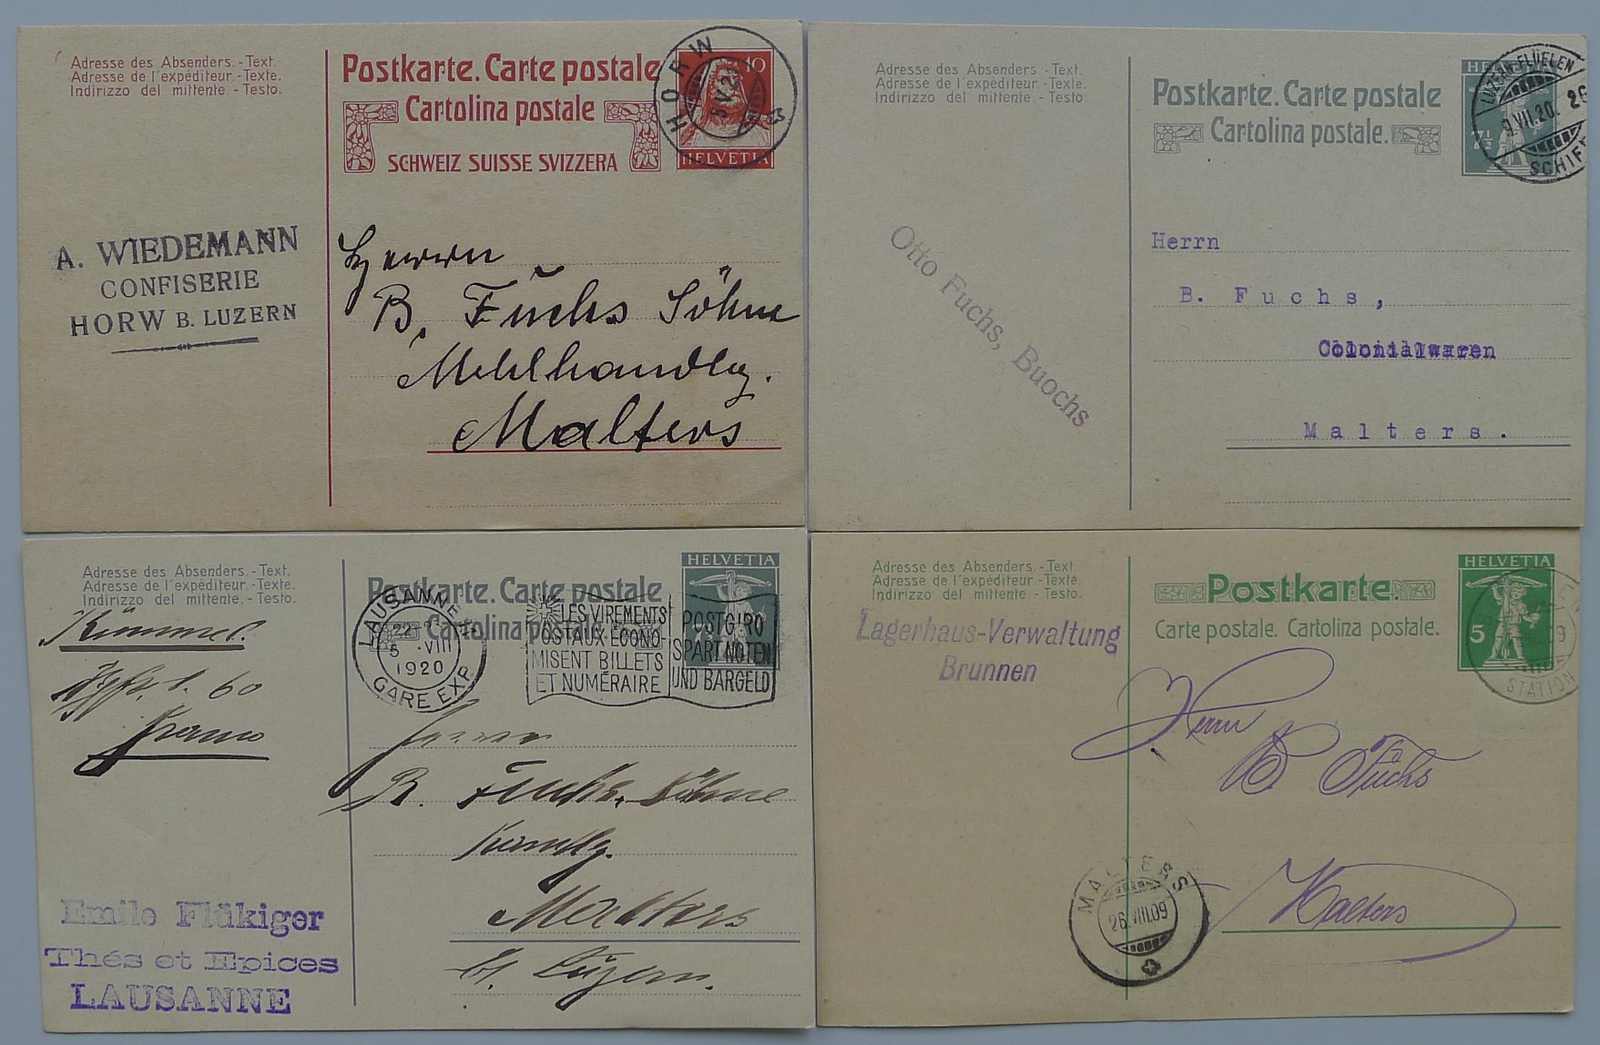 Adresse des Absenders. - Text.
Adresse de l'expéditeur. - Texte.
Indirizzo del mittente. - Testo.
Postkarte. Carte postale
Cartolina postale
SCHWEIZ SUISSE SVIZZERA
10
HELVETIA
HORW
A. WIEDEMANN
CONFISERIE
HORW B. LUZERN
Herrn
B. Fuchs Söhne
Mehlhandlg.
Malters
Adresse des Absenders - Text.
Adresse de l'expéditeur - Texte.
Indirizzo del mittente. - Testo
Postkarte. Carte postale
Cartolina postale.
7½
LUZERN-FLÜELEN
9.VII.20.
Otto Fuchs, Buochs
Herrn
B. Fuchs,
Colonialwaren
Malters.
Adresse des Absenders. - Text.
Adresse de l'expéditeur. - Texte.
Indirizzo del mittente. - Testo.
Postkarte. Carte postale
Cartolina postale.
HELVETIA
LAUSANNE
22
5.VIII
1920
GARE EXP.
LES VIREMENTS
POSTAUX ÉCONO-
MISENT BILLETS
ET NUMÉRAIRE
POSTGIRO
SPART NOTEN
UND BARGELD
Kümmel
franco
Herrn
B. Fuchs, Söhne
Handlg.
Malters
b/ Luzern.
Emile Flükiger
Thés et Epices
LAUSANNE
Adresse des Absenders. - Text.
Adresse de l'expéditeur. - Texte.
Indirizzo del mittente. - Testo.
Postkarte.
Carte postale. Cartolina postale.
HELVETIA
5
STATION
Lagerhaus-Verwaltung
Brunnen
Herrn
B. Fuchs
Malters
MALTERS
26.VIII.09